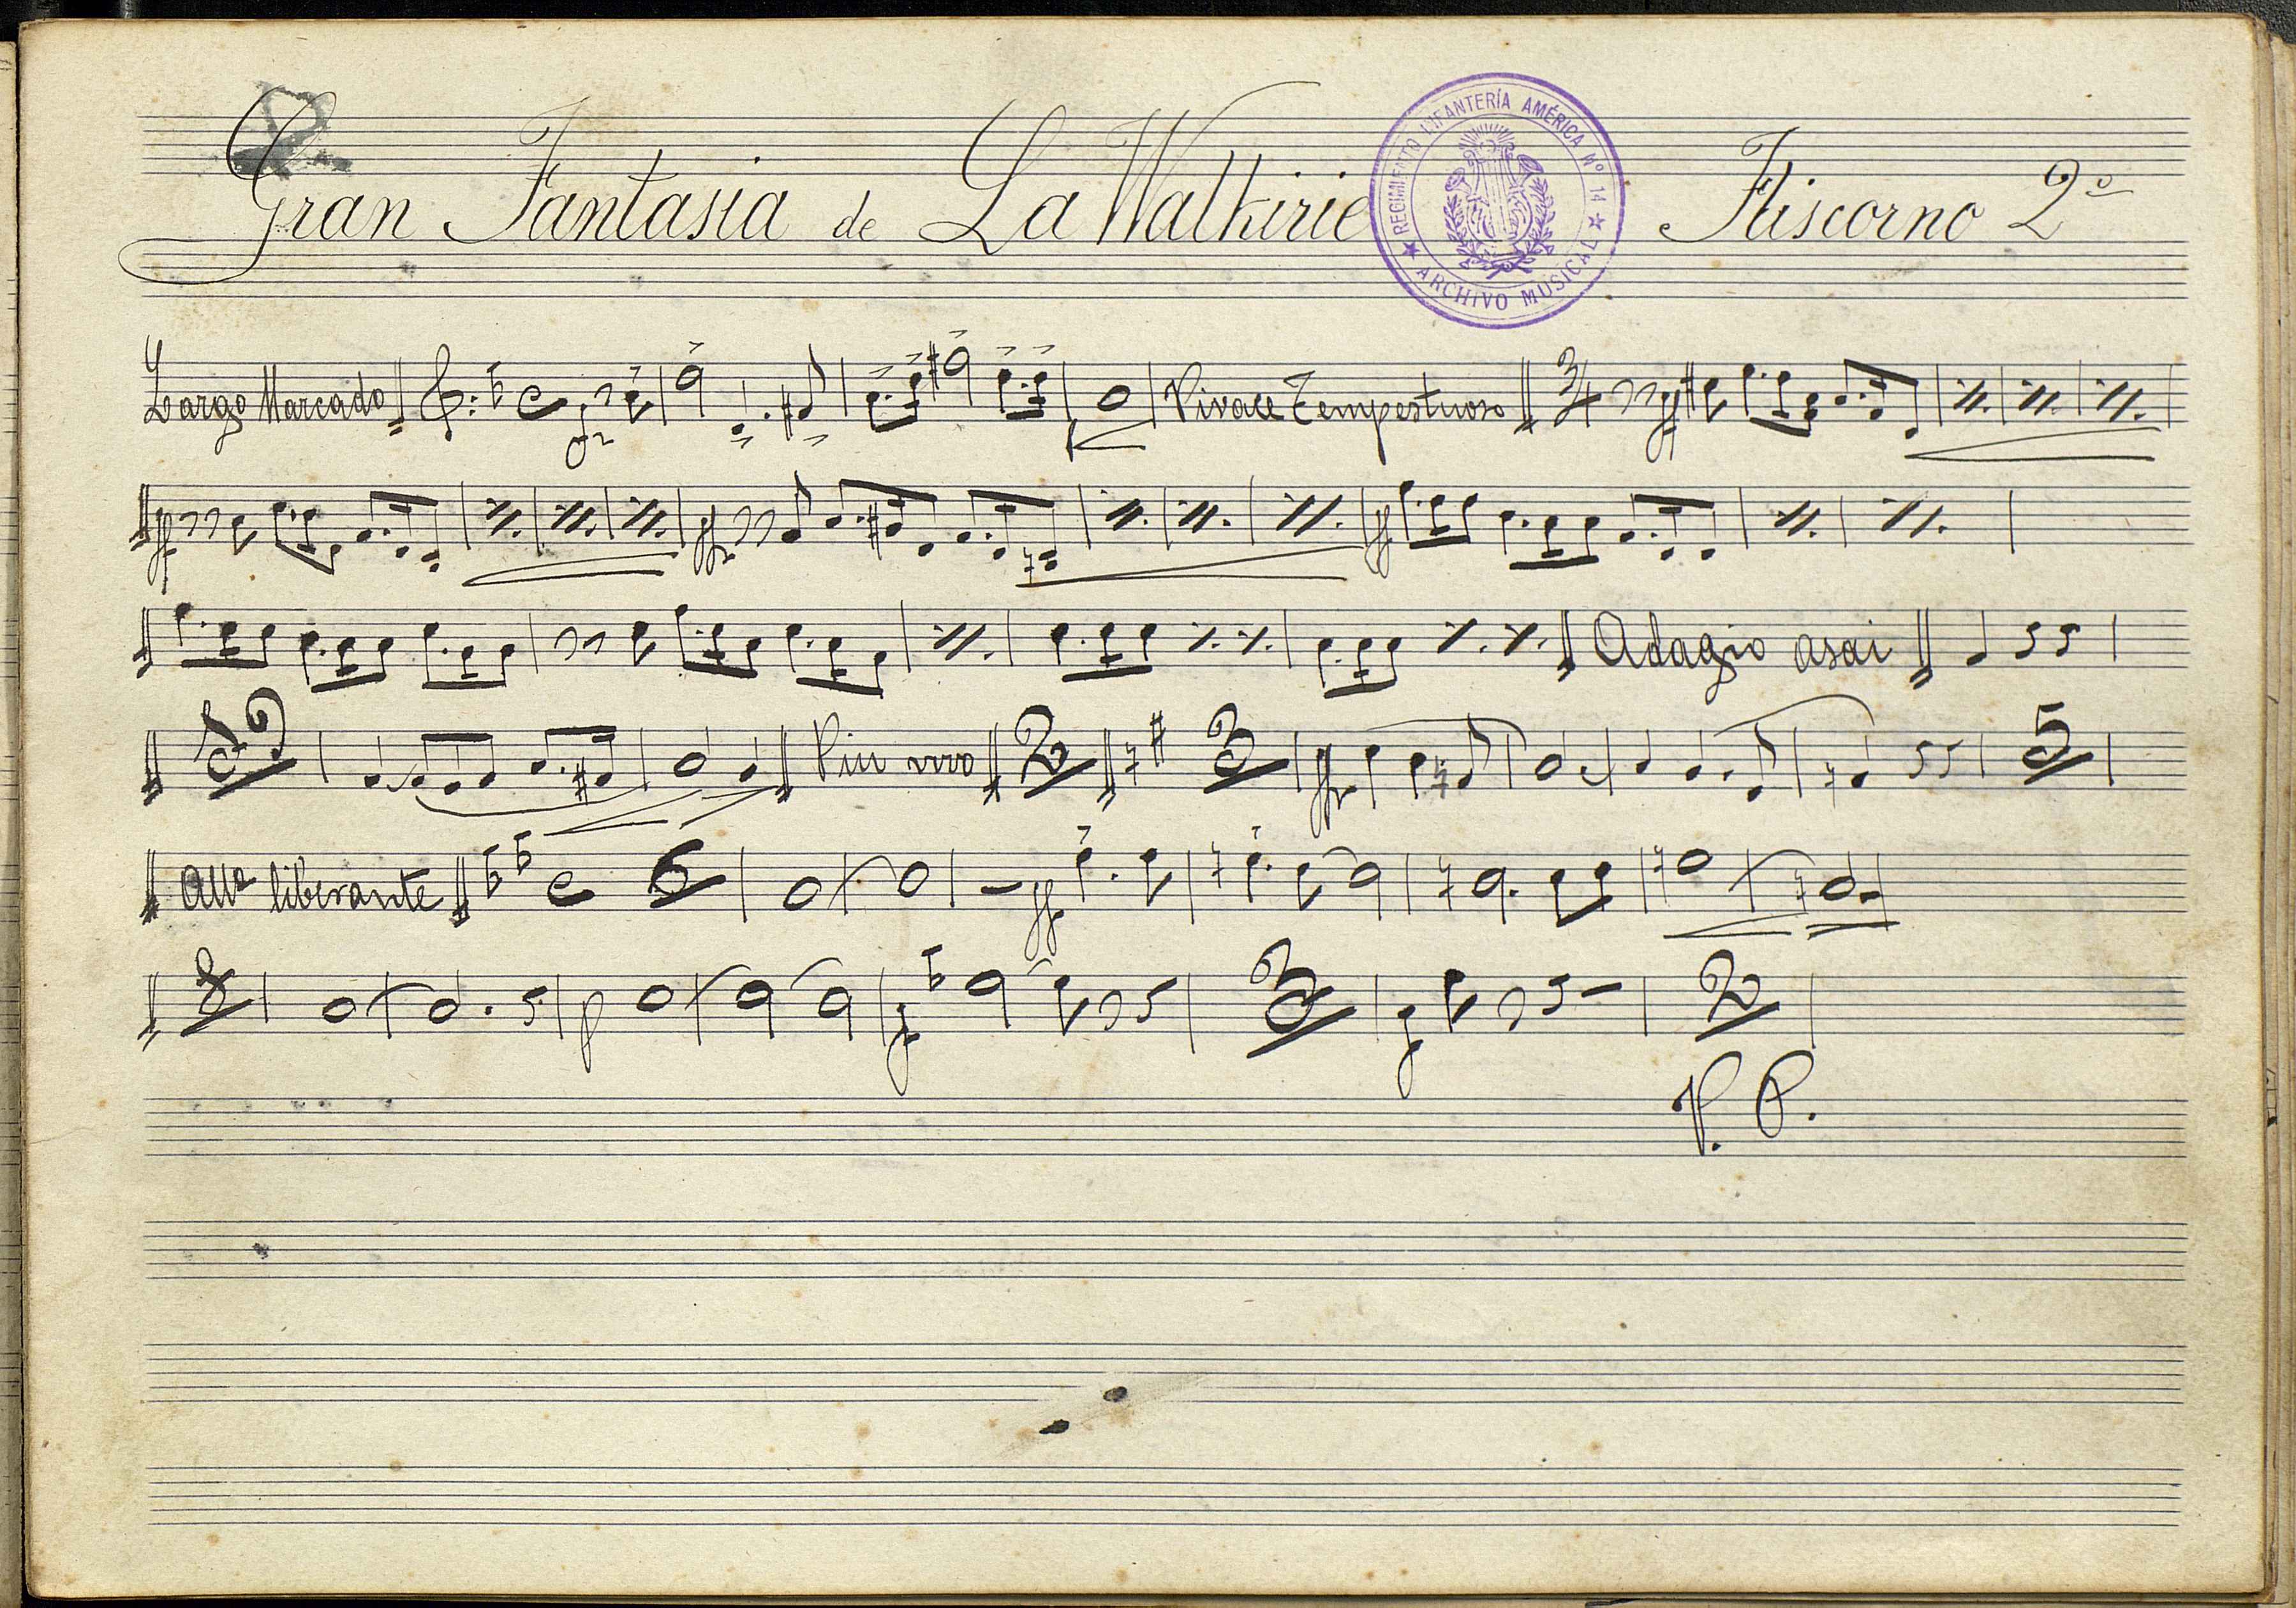 Gran Fantasia de La Walkirie Fliscorno 2º
REGIMIENTO INFANTERÍA AMÉRICA Nº 14
ARCHIVO MUSICAL
Largo Marcado Vivace Tempestuoso 3/4
Adagio asai
Piu vivo 2 3 5
All° liberante 6
8 3 2
V. P.